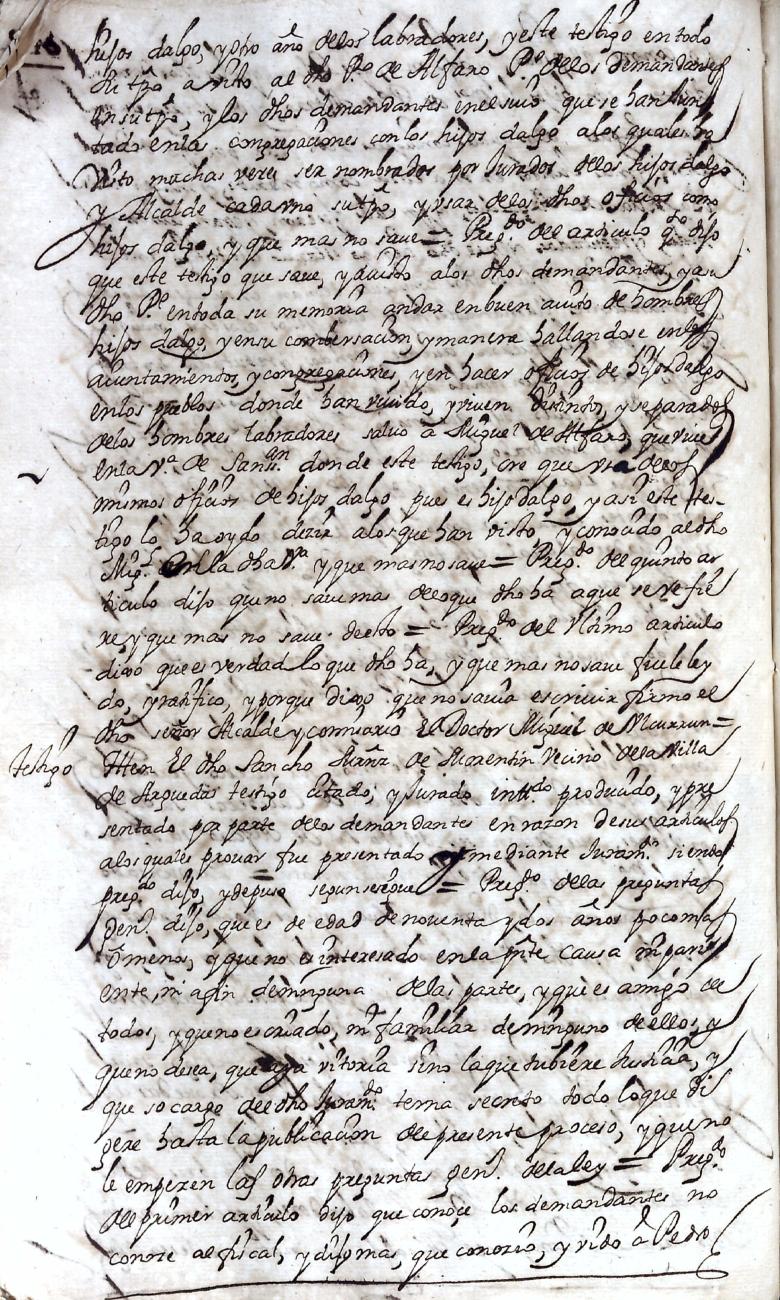 hijos dalgo, y otro año de los labradores, y este testigo en todo
su tpô, a visto al dho Pº de Alfaro Pe de los demandantes
en su tpô, y los dhos demandantes en el suio que se han Jun
tado en las congregaciones con los hijos dalgo a los quales ha
visto muchas veçes ser nombrados por Jurados de los hijos dalgo
y Alcalde cada uno su tpô, y usar de los dhos oficios como
hijos dalgo, y que mas no save = Pregdo del articulo qto dijo
que este testigo que save, y a visto a los dhos demandantes, y a su
dho Pe en toda su memoria andar en buen avito de hombres
hijos dalgo, y en su combersacion, y manera hallandose en los
aiuntamientos, y congregaciones, y en hacer oficios de hijos dalgo
en los pueblos donde han vivido, y viven distintos, y separados
de los hombres labradores salvo a Miguel de Alfaro, que vive
en la vª de Sansn donde este testigo, cre que usa de los
mismos oficios de hijos dalgo pues es hijo dalgo, y asi este tes-
tigo lo ha oydo dezir a los que han visto, y conocido al dho
Migl en la dha vª y que mas no save = Pregdo del quinto ar
ticulo dijo que no save mas de lo que dho ha a que se refie
re, y que mas no save de esto = Pregdo del Ultimo articulo
dixo que es verdad lo que dho ha, y que mas no save fuele ley
do, y ratifico, y porque dixo que no savia escrivir firmo el
dho señor Alcalde y comisario El Doctor Miguel de Murrun =
testigo Itten El dho Sancho de Morentin Vecino de la Villa
de Arguedas testigo citado, y Jurado produçido, y pre
sentado por parte de los demandantes en razon de sus articulos
a los quales provar fue presentado y mediante Juramto siendo
pregdo dijo, y depuso segun se sigue = Pregdo de las preguntas
genl dijo, que es de edad de noventa y dos años poco mas
ô menos, y que no es interesado en la pnte causa ni pari
ente, ni afin de ninguna de las partes, y que es amigo de
todos, y que no es criado, ni familiar de ninguno de ellos, y
que no desea, que aya vitoria sino la que tubiere Justicia, y
que so cargo del dho Juramto terna secreto todo lo que di
gere hasta la publicacion del presente proceso, y que no
le empezen las otras preguntas genl de la ley = Pregdo
del primer articulo dijo que conoçe los demandantes no
conoze al fiscal, y dijo mas, que conozio, y vido â Pedro